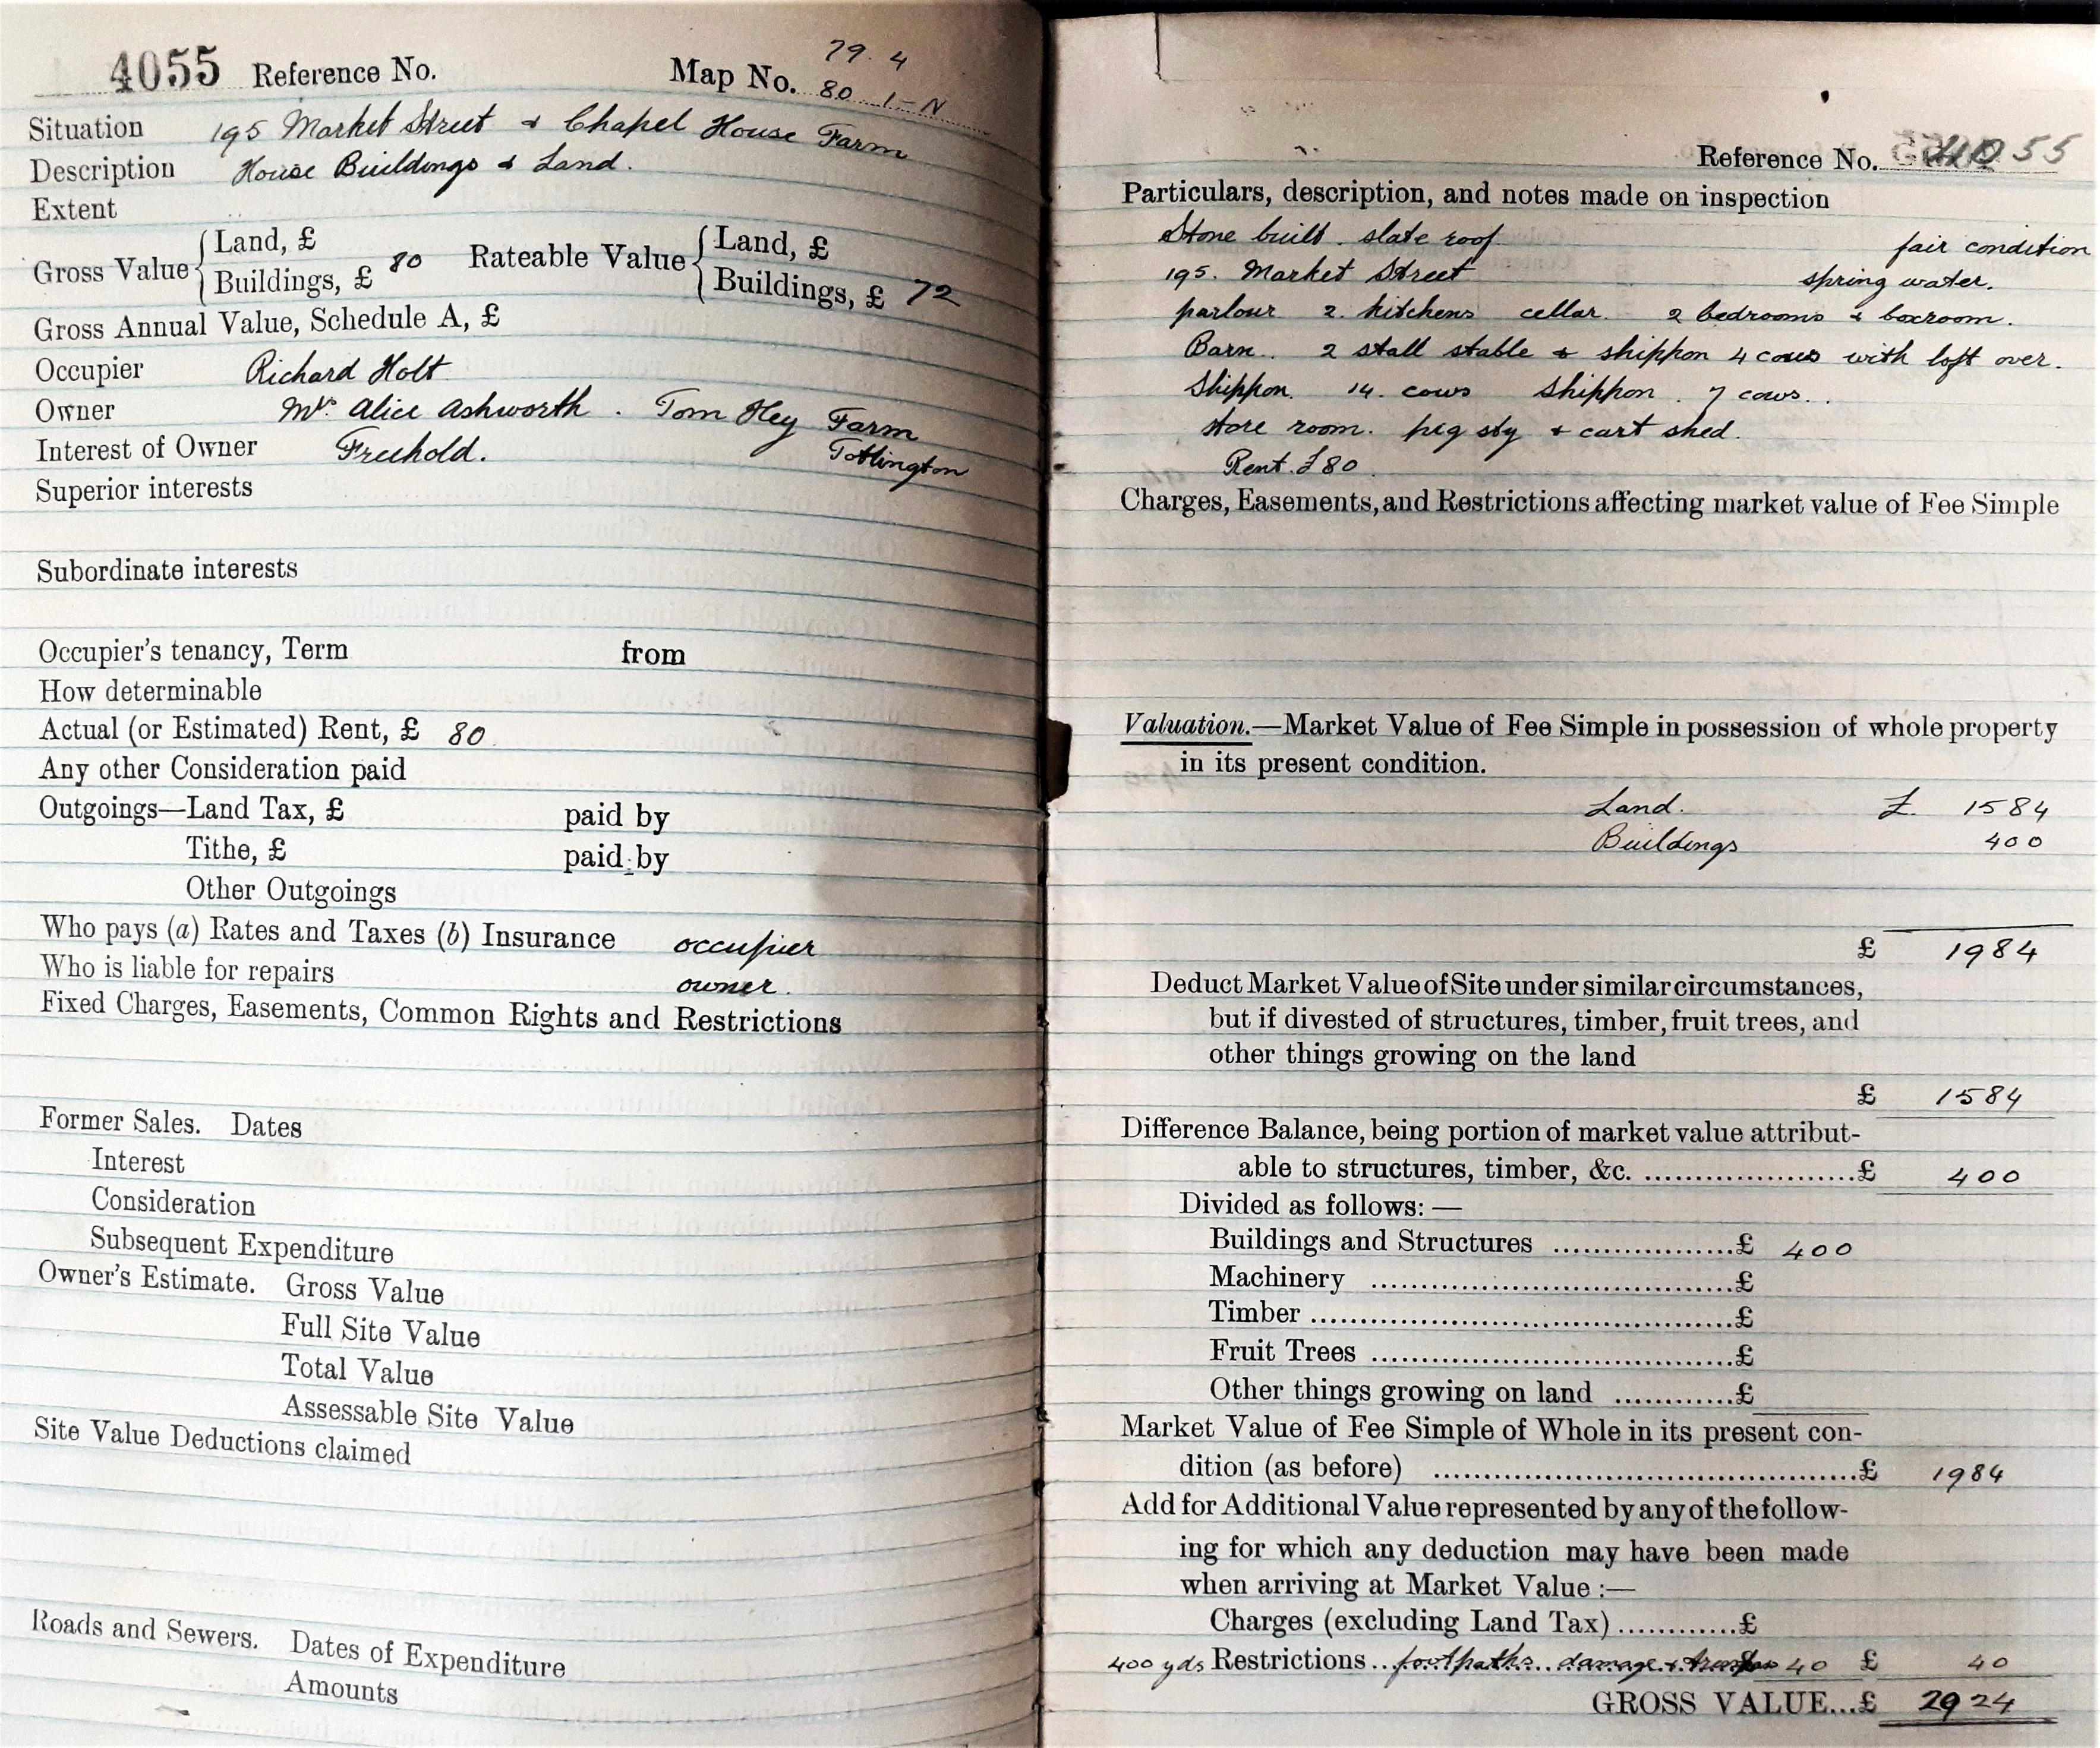 4055 Reference No. Map No. 79. 4
80 1-N
Situation 195 Market Street & Chapel House Farm
Description House Buildings & Land.
Extent
Gross Value { Land, £ Rateable Value { Land, £
Buildings, £ 80 Buildings, £ 72
Gross Annual Value, Schedule A, £
Occupier Richard Holt
Owner Mrs Alice Ashworth. Tom Hey Farm
Interest of Owner Freehold. Tottington
Superior interests
Subordinate interests
Occupier's tenancy, Term from
How determinable
Actual (or Estimated) Rent, £ 80
Any other Consideration paid
Outgoings—Land Tax, £ paid by
Tithe, £ paid by
Other Outgoings
Who pays (a) Rates and Taxes (b) Insurance occupier
Who is liable for repairs owner.
Fixed Charges, Easements, Common Rights and Restrictions
Former Sales. Dates
Interest
Consideration
Subsequent Expenditure
Owner's Estimate. Gross Value
Full Site Value
Total Value
Assessable Site Value
Site Value Deductions claimed
Roads and Sewers. Dates of Expenditure
Amounts
Reference No. 4055
Particulars, description, and notes made on inspection
Stone built. slate roof fair condition
195. Market Street spring water.
parlour 2. kitchens cellar. 2 bedrooms & boxroom.
Barn. 2 stall stable & shippon 4 cows with loft over.
Shippon. 14. cows Shippon. 7 cows..
store room. pig sty & cart shed.
Rent. £80
Charges, Easements, and Restrictions affecting market value of Fee Simple
Valuation.—Market Value of Fee Simple in possession of whole property
in its present condition.
Land. £ 1584
Buildings 400
£ 1984
Deduct Market Value of Site under similar circumstances,
but if divested of structures, timber, fruit trees, and
other things growing on the land
£ 1584
Difference Balance, being portion of market value attribut-
able to structures, timber, &c. ......................£ 400
Divided as follows:—
Buildings and Structures ...................£ 400
Machinery ......................................£
Timber ............................................£
Fruit Trees ......................................£
Other things growing on land ............£
Market Value of Fee Simple of Whole in its present con-
dition (as before) ............................................£ 1984
Add for Additional Value represented by any of the follow-
ing for which any deduction may have been made
when arriving at Market Value:—
Charges (excluding Land Tax)............£
400 yds Restrictions ..footpaths damage & 40 £ 40
GROSS VALUE...£ 2024